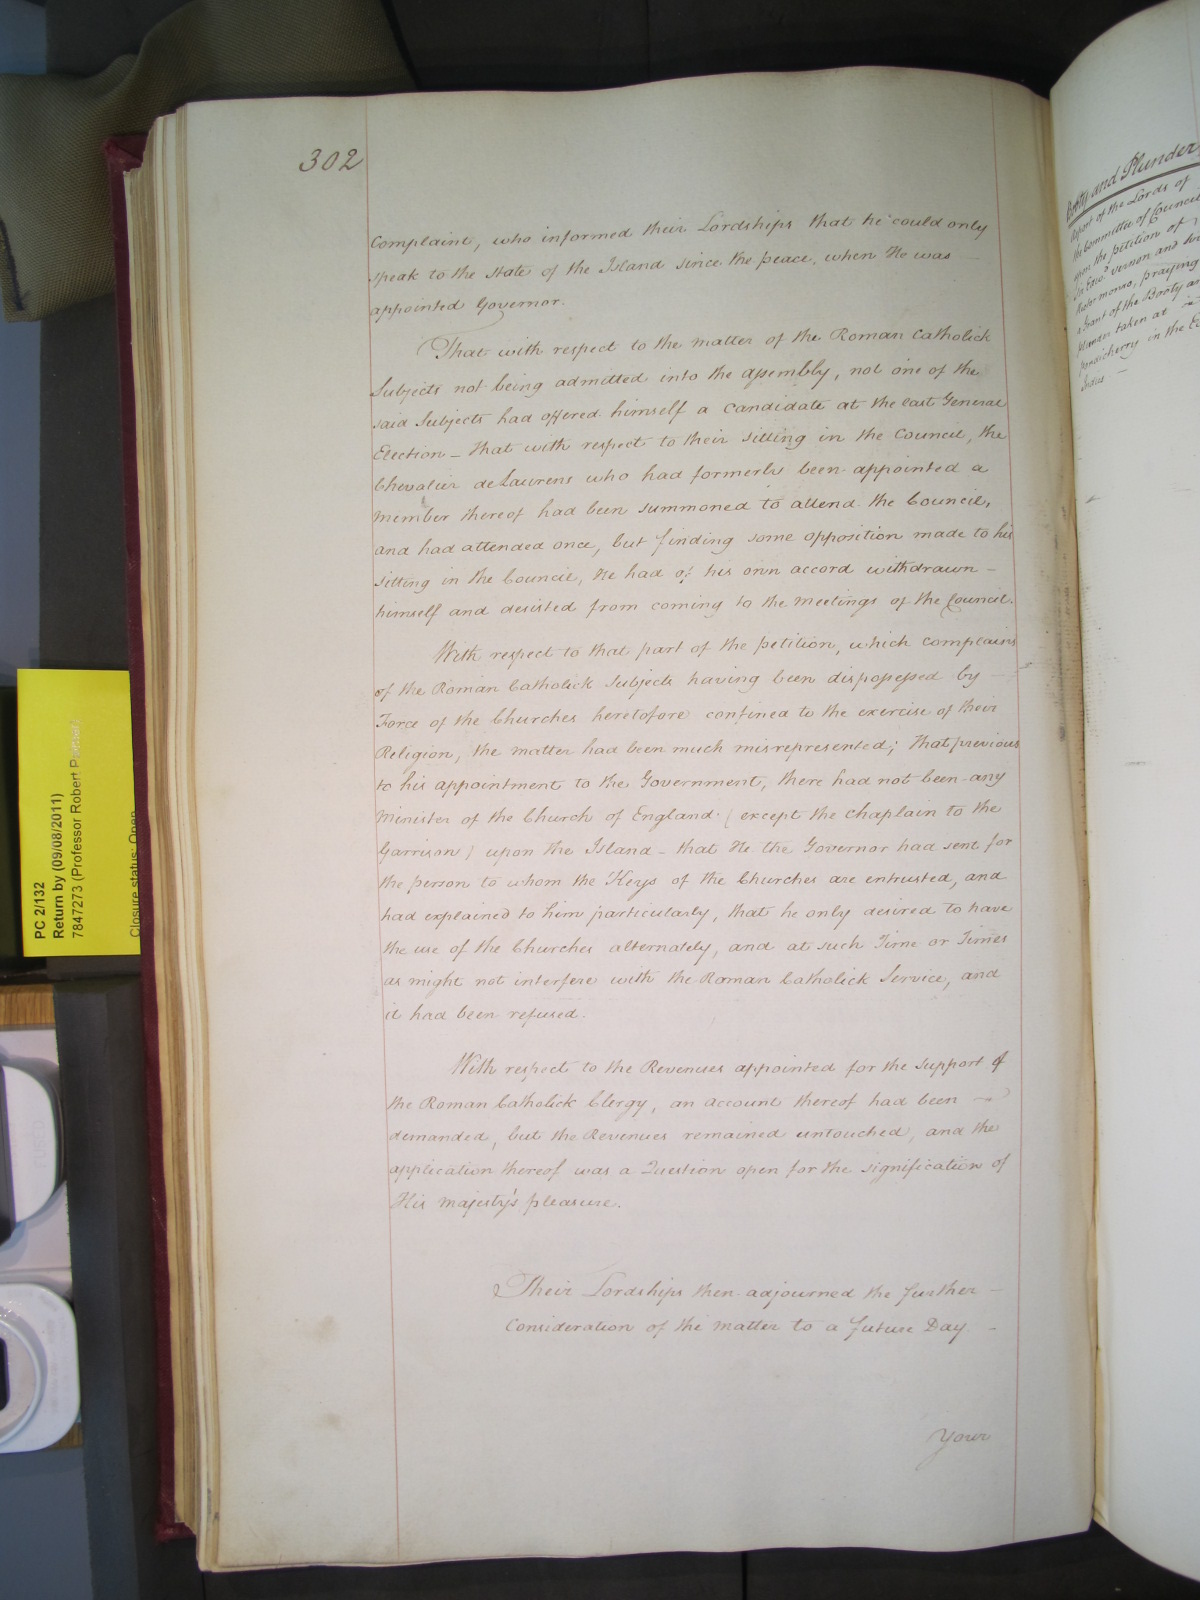 302
Complaint, who informed their Lordships that he could only
speak to the State of the Island since the peace, when He was
appointed Governor.
That with respect to the matter of the Roman Catholick
Subjects not being admitted into the assembly, not one of the
said Subjects had offered himself a Candidate at the last General
Election – That with respect to their sitting in the Council, the
Chevalier de Laurens who had formerly been appointed a
Member thereof had been summoned to attend the Council,
and had attended once, but finding some opposition made to his
sitting in the Council, He had of his own accord withdrawn –
himself and desisted from coming to the Meetings of the Council.
With respect to that part of the petition, which complains
of the Roman Catholick Subjects having been dispossessed by
Force of the Churches heretofore confined to the exercise of their
Religion, the matter had been much misrepresented; That previous
to his appointment to the Government, there had not been any
Minister of the Church of England (except the Chaplain to the
Garrison) upon the Island – that He the Governor had sent for
the person to whom the Keys of the Churches are entrusted, and
had explained to him particularly, that he only desired to have
the use of the Churches alternately, and at such Time or Times
as might not interfere with the Roman Catholick Service, and
it had been refused.
With respect to the Revenues appointed for the Support of
the Roman Catholick Clergy, an account thereof had been –
demanded, but the Revenues remained untouched, and the
application thereof was a Question open for the signification of
His Majesty's pleasure.
Their Lordships then adjourned the further –
Consideration of the matter to a future Day. –
Your
Booty and Plunder
Report of the Lords of
the Committee of Council
upon the petition of
Sir Edwd. Vernon and Sir
Hector Monro, praying
a Grant of the Booty and
plunder taken at
pondicherry in the
Indies –
PC 2/132
Return by (09/08/2011)
7847273 (Professor Robert
Closure status: Open